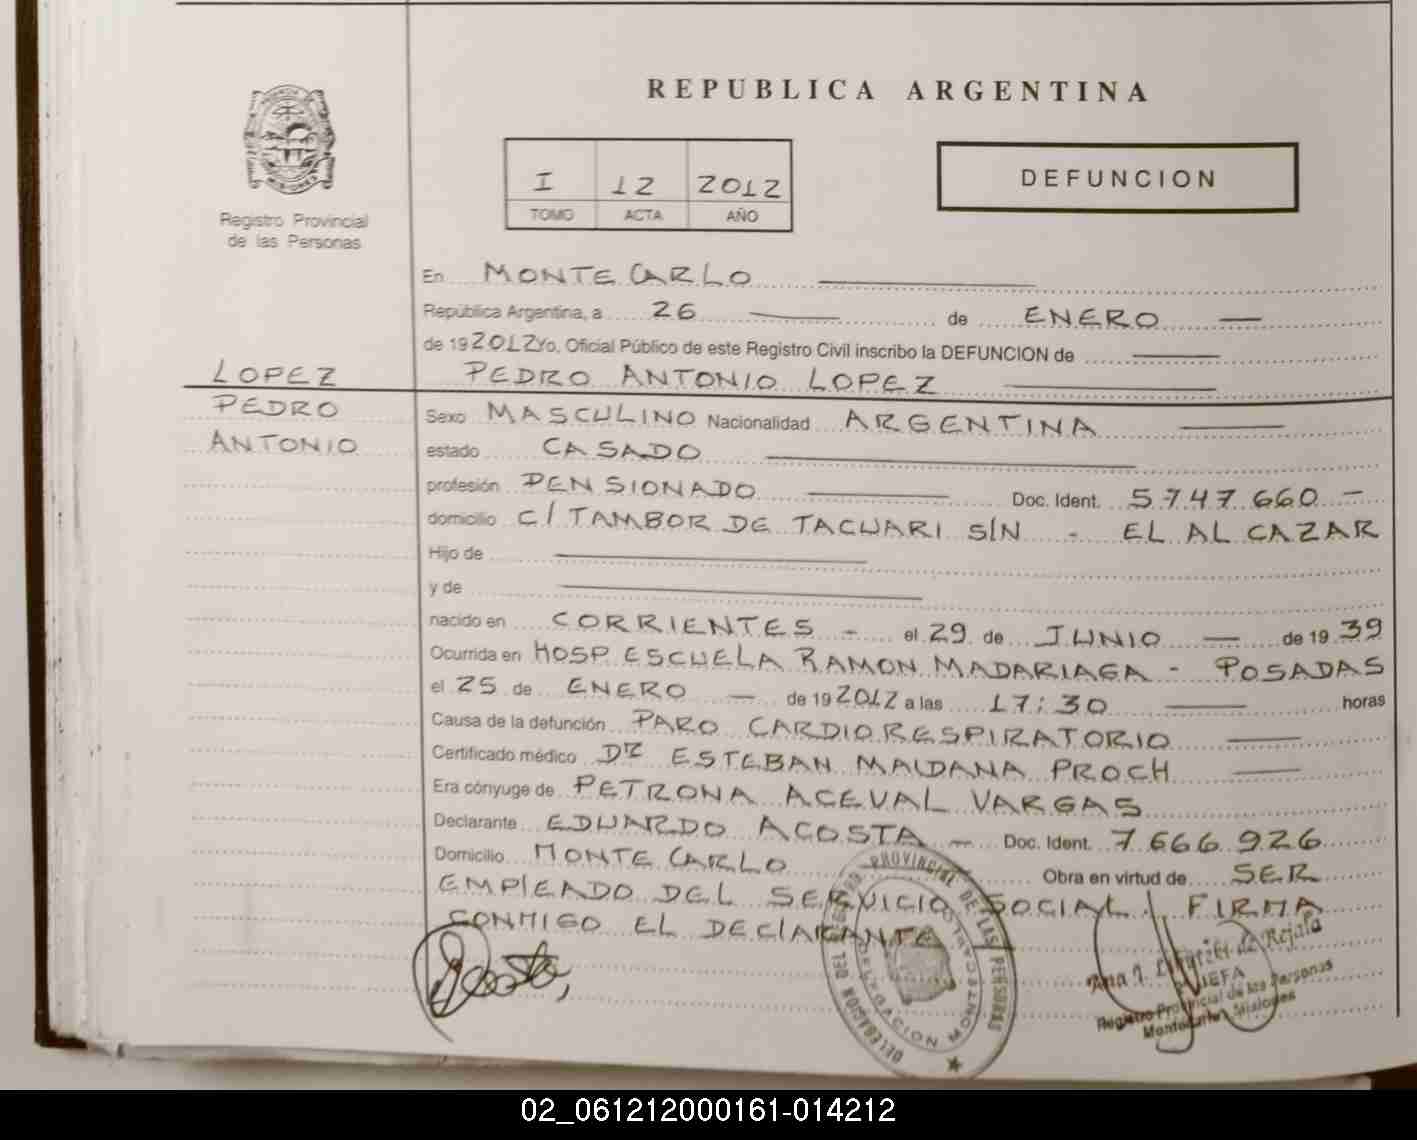 REPUBLICA ARGENTINA
DEFUNCION
I 12 2012
TOMO ACTA AÑO
Registro Provincial
de las Personas
En MONTECARLO
República Argentina, a 26 de ENERO
de 192012 Yo, Oficial Público de este Registro Civil inscribo la DEFUNCION de
PEDRO ANTONIO LOPEZ
LOPEZ
PEDRO
ANTONIO
Sexo MASCULINO Nacionalidad ARGENTINA
estado CASADO
profesión PENSIONADO Doc. Ident. 5.747.660 -
domicilio C/ TAMBOR DE TACUARI S/N - EL ALCAZAR
Hijo de
y de
nacido en CORRIENTES - el 29 de JUNIO de 19 39
Ocurrida en HOSP. ESCUELA RAMON MADARIAGA - POSADAS
el 25 de ENERO de 192012 a las 17:30 horas
Causa de la defunción PARO CARDIORESPIRATORIO
Certificado médico DR ESTEBAN MALDANA PROCH
Era cónyuge de PETRONA ACEVAL VARGAS
Declarante EDUARDO ACOSTA - Doc. Ident. 7.666.926
Domicilio MONTECARLO Obra en virtud de SER
EMPLEADO DEL SERVICIO SOCIAL. FIRMA
CONMIGO EL DECLARANTE
DELEGACION DEL REGISTRO PROVINCIAL DE LAS PERSONAS
DELEGACION MONTECARLO
Ana de Rejala
JEFA
Registro Provincial de las Personas
Montecarlo Misiones
02_061212000161-014212